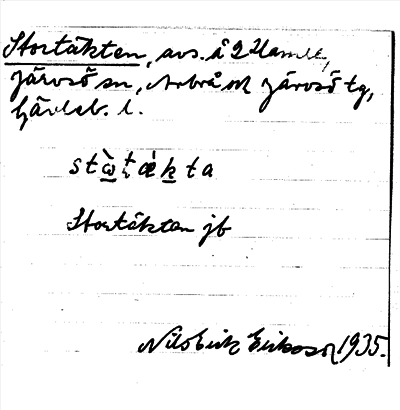 Stortäkten, avs. å 2 Hamre,
Järvsö sn, Arbrå o Järvsö tg,
Gävleb. l.
stὼ̲ṭæ̀k̲ta
Stortäkten jb
Nils Erik Eriksson 1935.